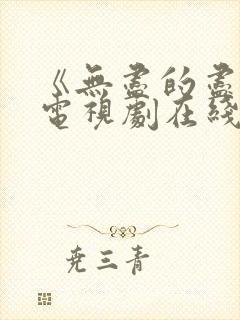 《無盡的盡
電視劇在綫
堯三青